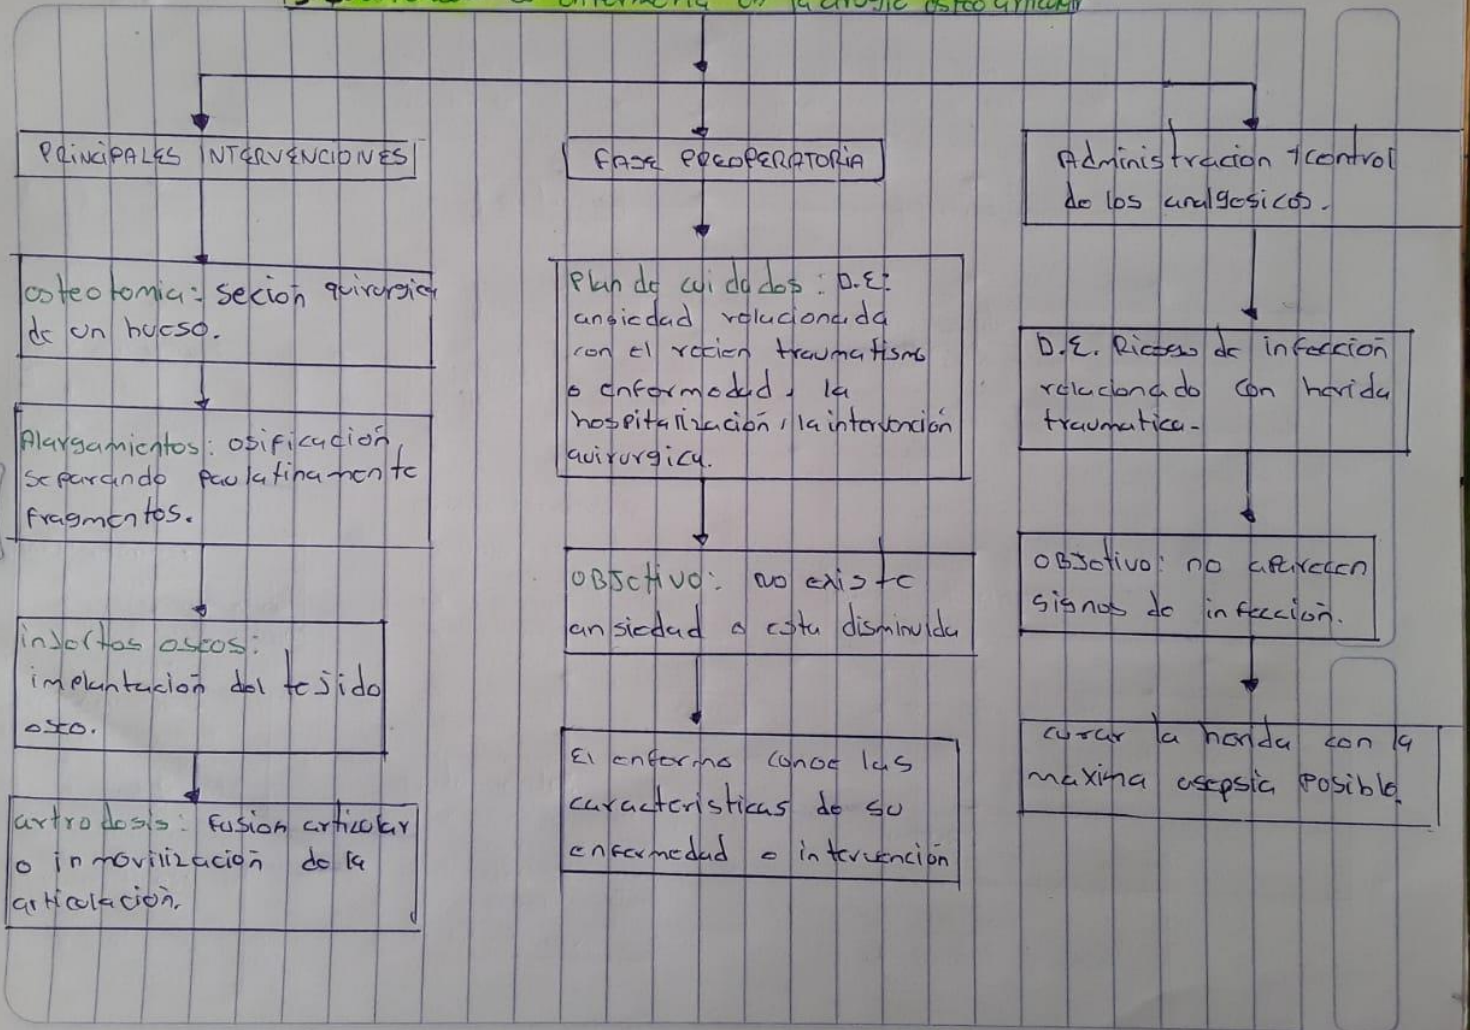 de enfermeria en la cirugia osteoarticular
PRINCIPALES INTERVENCIONES
osteotomia: Secion quirurgica
de un hueso.
Alargamientos: osificacion,
separando paulatinamente
fragmentos.
injertos oseos:
implantacion del tejido
oseo.
artrodesis: Fusion articular
o inmovilización de la
articulación.
FASE PREOPERATORIA
Plan de cuidados: D.E:
ansiedad relacionada
con el recien traumatismo
o enfermedad, la
hospitalización, la intervención
quirurgica.
OBJetivo: no existe
ansiedad o esta disminuida
El enfermo conoe las
caracteristicas de su
enfermedad e intervención
Administración y control
de los analgesicos.
D.E. Riesgo de infección
relacionado con herida
traumatica-
OBJetivo: no aparecen
signos de infeccion.
curar la herida con la
maxima asepsia posible.